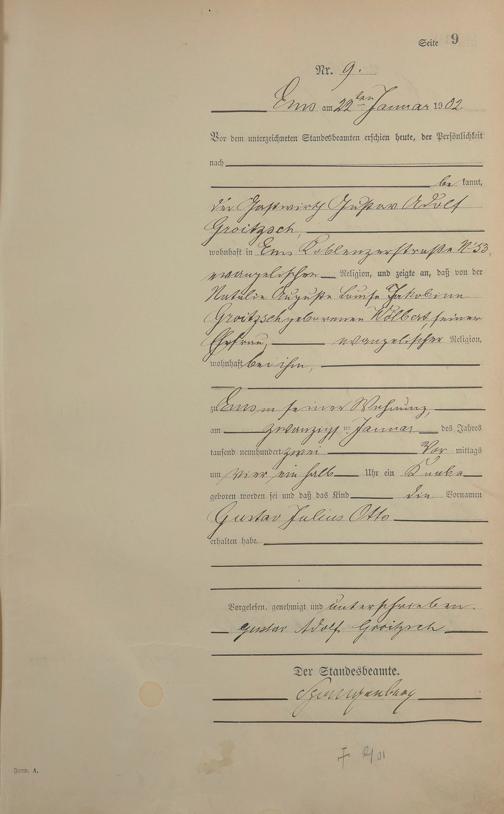 Seite 9
Nr. 9.
Ems am 22ten Januar 1902
Vor dem unterzeichneten Standesbeamten erschien heute, der Persönlichkeit
nach
be kannt,
der Gastwirth Gustav Adolf
Groitzsch,
wohnhaft in Ems Koblenzerstraße N 53,
evangelischen Religion, und zeigte an, daß von der
Natalie Auguste Louise Jakobine
Groitzsch geborenen Wölbert, seiner
Ehefrau, evangelischer Religion,
wohnhaft bei ihm,
zu Ems in seiner Wohnung,
am zwanzigsten Januar des Jahres
tausend neunhundert zwei Vor mittags
um vier ein halb Uhr ein Knabe
geboren worden sei und daß das Kind die Vornamen
Gustav Julius Otto
erhalten habe.
Vorgelesen, genehmigt und unterschrieben.
Gustav Adolf Groitzsch
Der Standesbeamte.
Form. A.